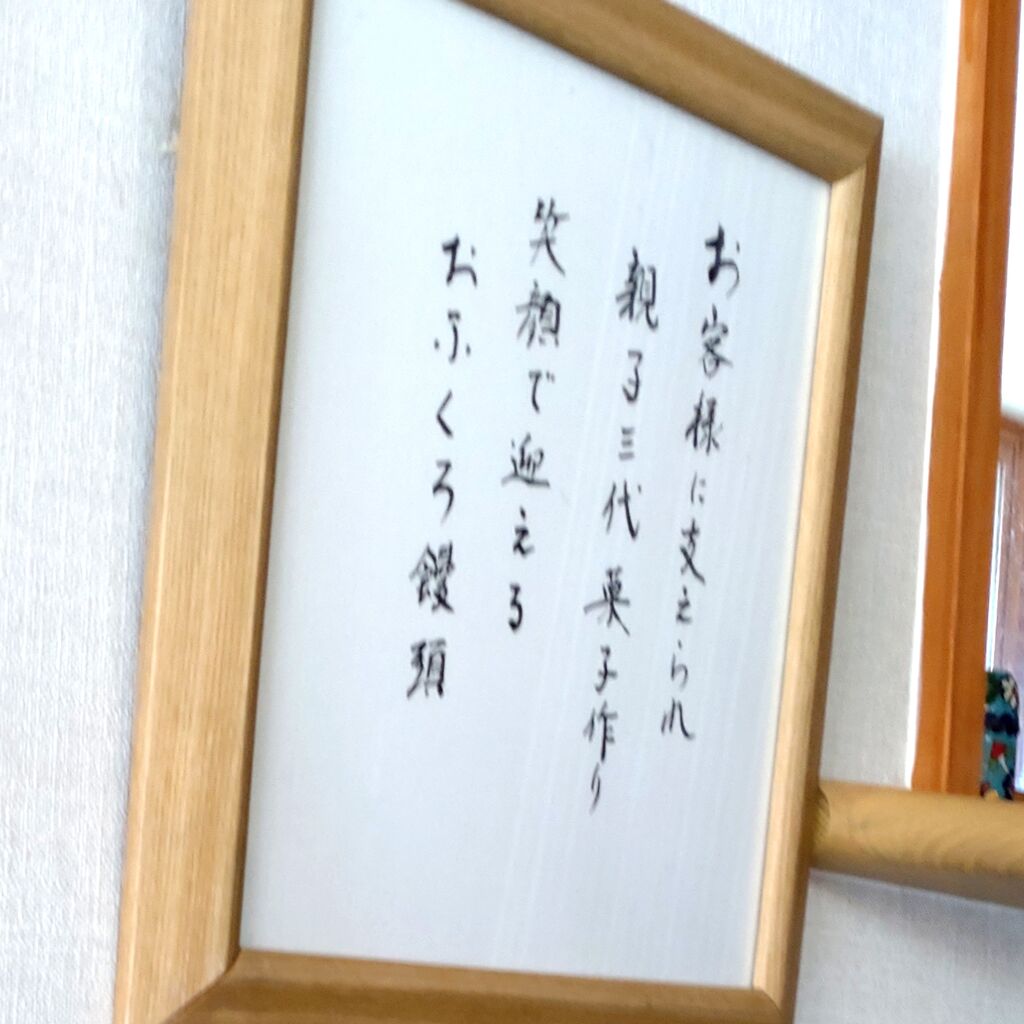 お客様に支えられ
親子三代菓子作り
笑顔で迎える
おふくろ饅頭